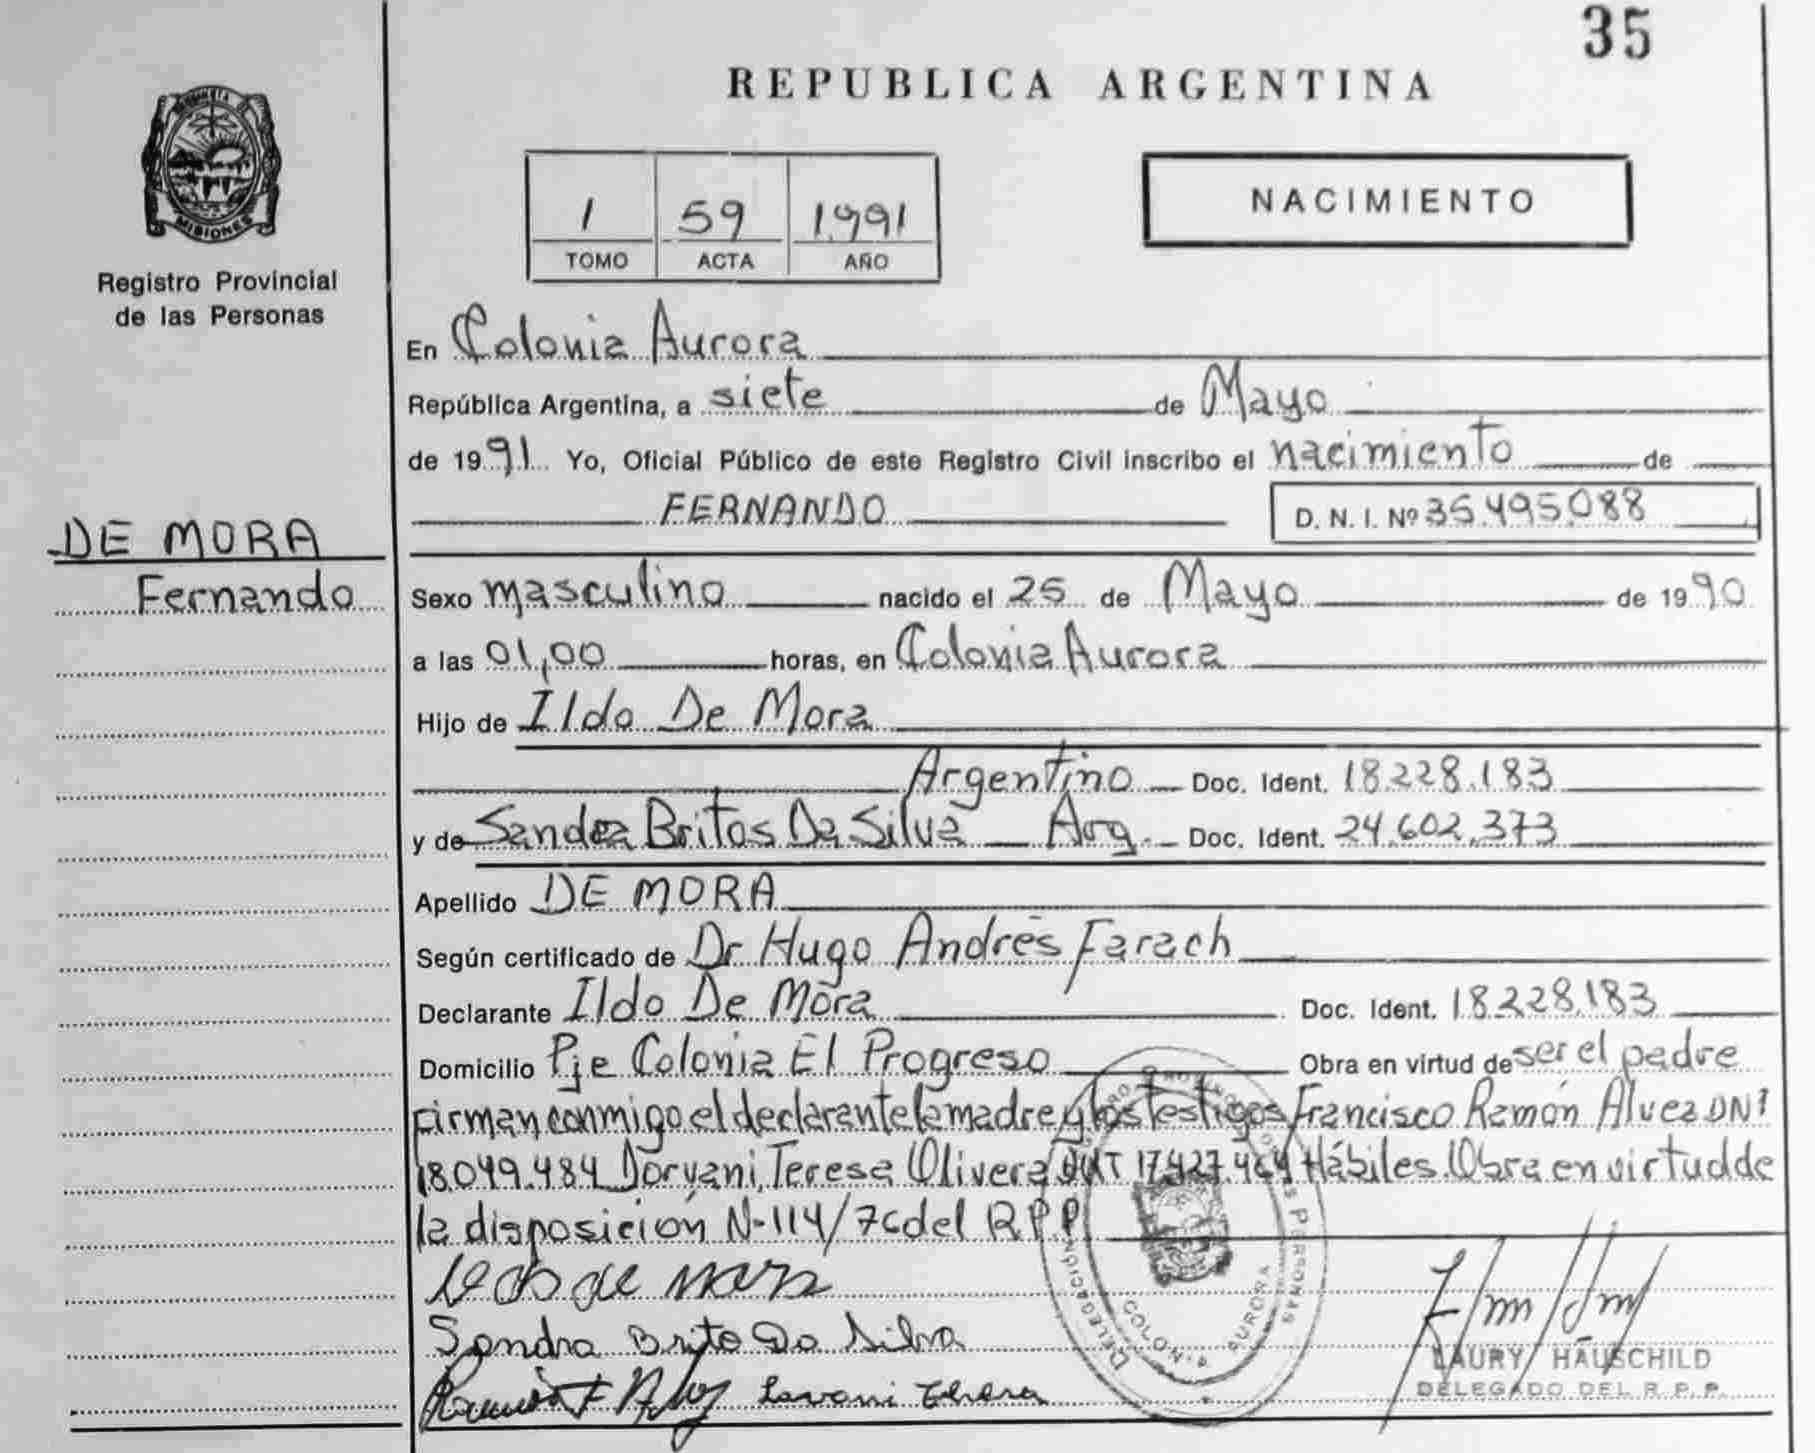 35
REPUBLICA ARGENTINA
MISIONES
Registro Provincial
de las Personas
1 59 1.991
TOMO ACTA AÑO
NACIMIENTO
En Colonia Aurora
República Argentina, a siete de Mayo
de 1991 Yo, Oficial Público de este Registro Civil inscribo el nacimiento de
FERNANDO D. N. I. Nº 35.495.088
DE MORA
Fernando
Sexo masculino nacido el 25 de Mayo de 1990
a las 01,00 horas, en Colonia Aurora
Hijo de Ildo De Mora
Argentino Doc. Ident. 18.228.183
y de Sandra Britos Da Silva Arg. Doc. Ident. 24.602.373
Apellido DE MORA
Según certificado de Dr Hugo Andrés Farach
Declarante Ildo De Mora Doc. Ident. 18.228.183
Domicilio Pje Colonia El Progreso Obra en virtud de ser el padre
Firman conmigo el declarante la madre y los testigos Francisco Ramón Alvez DNI
18.049.484 Dorvani, Teresa Olivera 17.427.464 Hábiles. Obra en virtud de
la disposición N-114/76 del R.P.P
de mora
Sandra Brito Da Silva
DELEGACIÓN COLONIA AURORA
LAURY HAUSCHILD
DELEGADO DEL R. P. P.